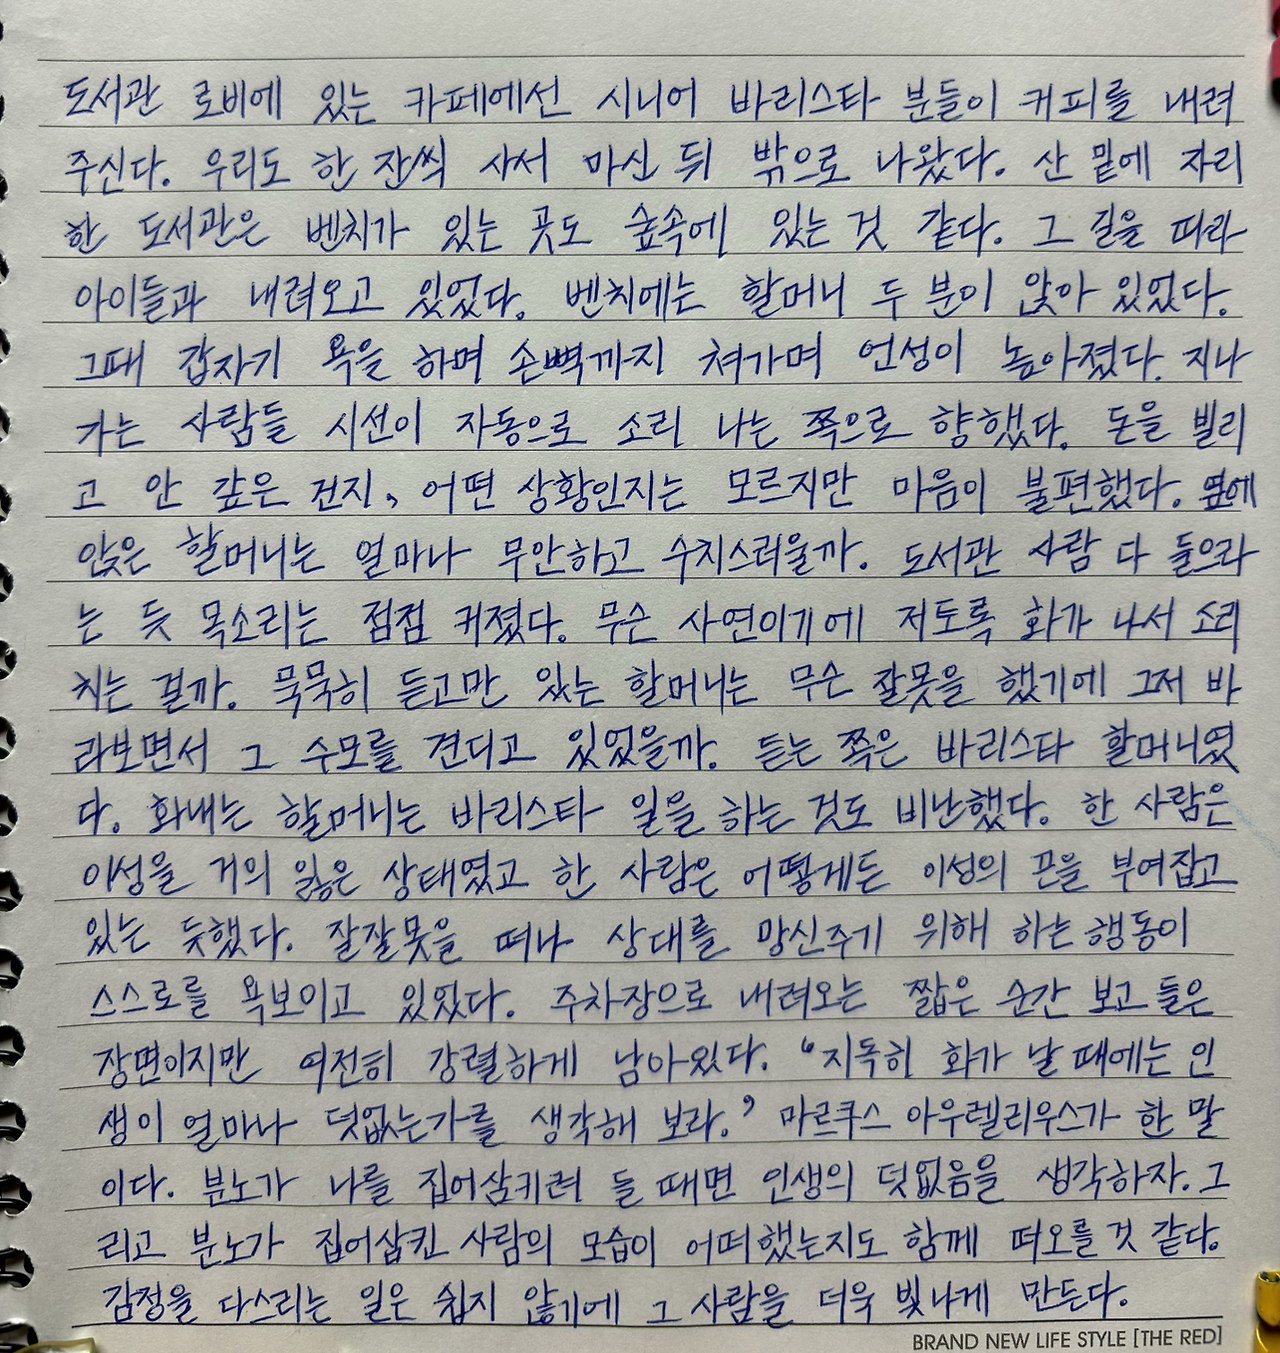 도서관 로비에 있는 카페에선 시니어 바리스타 분들이 커피를 내려
주신다. 우리도 한 잔씩 사서 마신 뒤 밖으로 나왔다. 산 밑에 자리
한 도서관은 벤치가 있는 곳도 숲속에 있는 것 같다. 그 길을 따라
아이들과 내려오고 있었다. 벤치에는 할머니 두 분이 앉아 있었다.
그때 갑자기 욕을 하며 손뼉까지 쳐가며 언성이 높아졌다. 지나
가는 사람들 시선이 자동으로 소리 나는 쪽으로 향했다. 돈을 빌리
고 안 갚은 건지, 어떤 상황인지는 모르지만 마음이 불편했다. 옆에
앉은 할머니는 얼마나 무안하고 수치스러울까. 도서관 사람 다 들으라
는 듯 목소리는 점점 커졌다. 무슨 사연이기에 저토록 화가 나서 소리
치는 걸까. 묵묵히 듣고만 있는 할머니는 무슨 잘못을 했기에 그저 바
라보면서 그 수모를 견디고 있었을까. 듣는 쪽은 바리스타 할머니였
다. 화내는 할머니는 바리스타 일을 하는 것도 비난했다. 한 사람은
이성을 거의 잃은 상태였고 한 사람은 어떻게든 이성의 끈을 부여잡고
있는 듯했다. 잘잘못을 떠나 상대를 망신주기 위해 하는 행동이
스스로를 욕보이고 있었다. 주차장으로 내려오는 짧은 순간 보고 들은
장면이지만 여전히 강렬하게 남아있다. ‘지독히 화가 날 때에는 인
생이 얼마나 덧없는가를 생각해 보라.’ 마르쿠스 아우렐리우스가 한 말
이다. 분노가 나를 집어삼키려 들 때면 인생의 덧없음을 생각하자. 그
리고 분노가 집어삼킨 사람의 모습이 어떠했는지도 함께 떠오를 것 같다.
감정을 다스리는 일은 쉽지 않기에 그 사람을 더욱 빛나게 만든다.
BRAND NEW LIFE STYLE [THE RED]